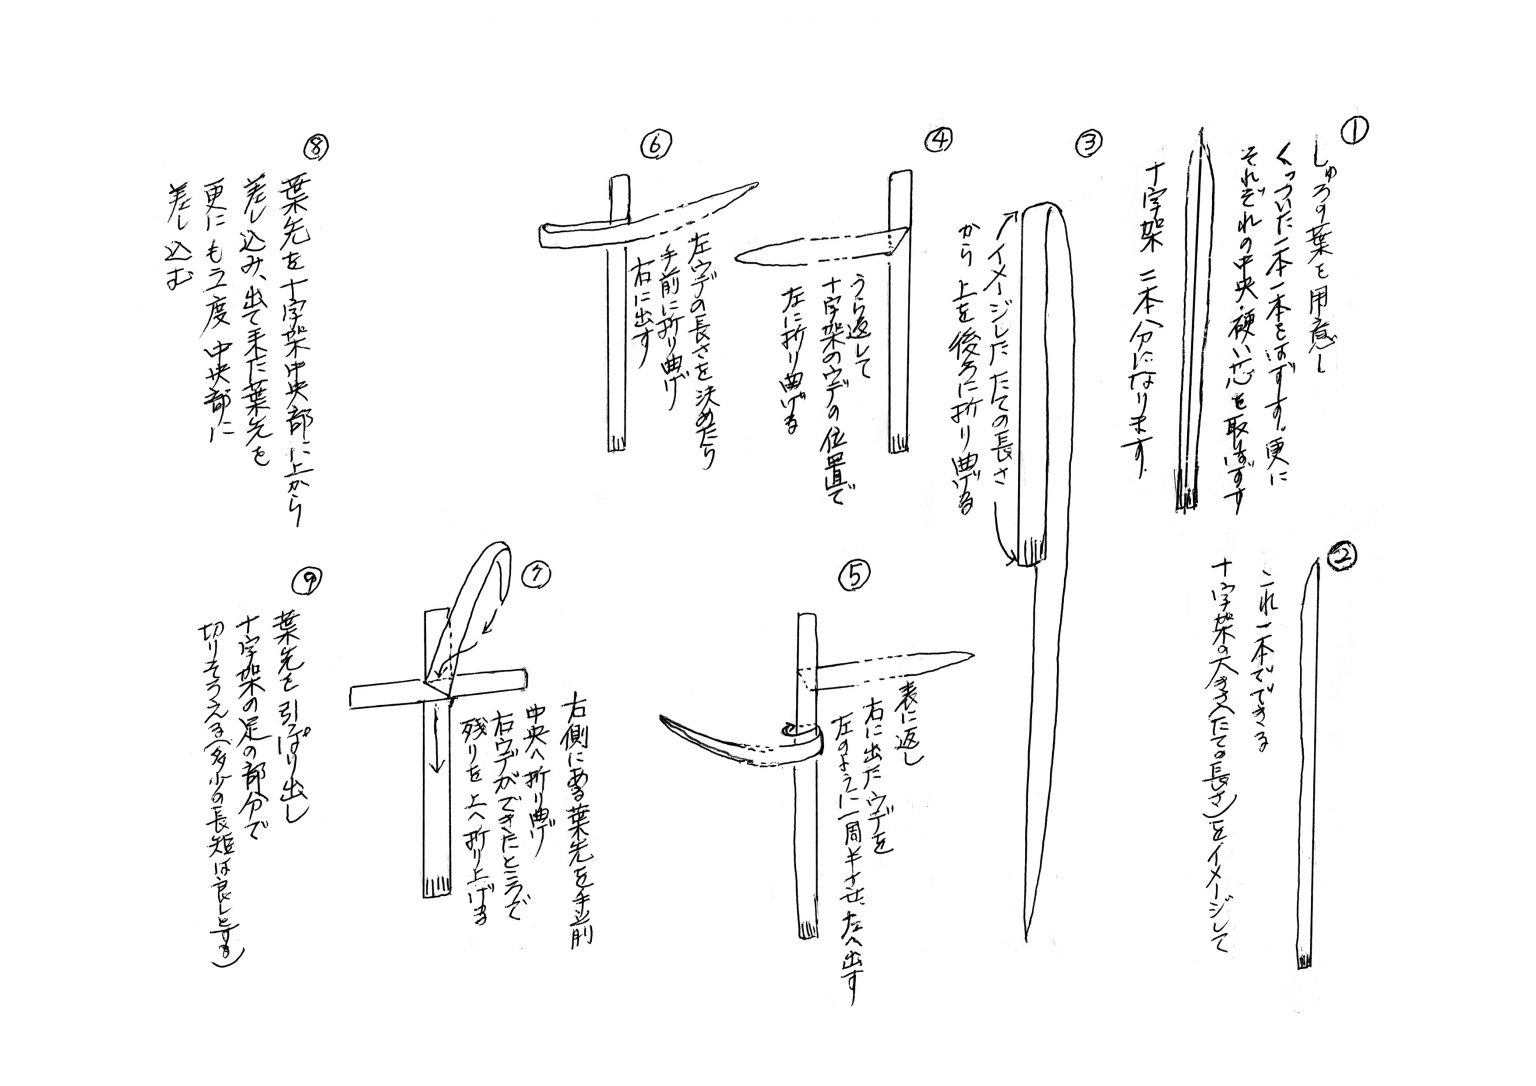 ①
しゅろの葉を用意し
くっついた二本一本をはずす。更に
それぞれの中央・硬い芯を取はずす
十字架 二本分になります。
②
これ一本でできる
十字架の大きさ(たての長さ)をイメージして
③
イメージしたたての長さ
から上を後ろに折り曲げる
④
うら返して
十字架のウデの位置で
左に折り曲げる
⑤
表に返し
右に出たウデを
左のように一周半させ、左へ出す
⑥
左ウデの長さを決めたら
手前に折り曲げ
右に出す
⑦
右側にある葉先を手前
中央へ折り曲げ
右ウデができたところで
残りを上へ折り上げる
⑧
葉先を十字架中央部に上から
差し込み、出て来た葉先を
更にもう一度中央部に
差し込む
⑨
葉先を引っぱり出し
十字架の足の部分で
切りそろえる(多少の長短は良しとする)